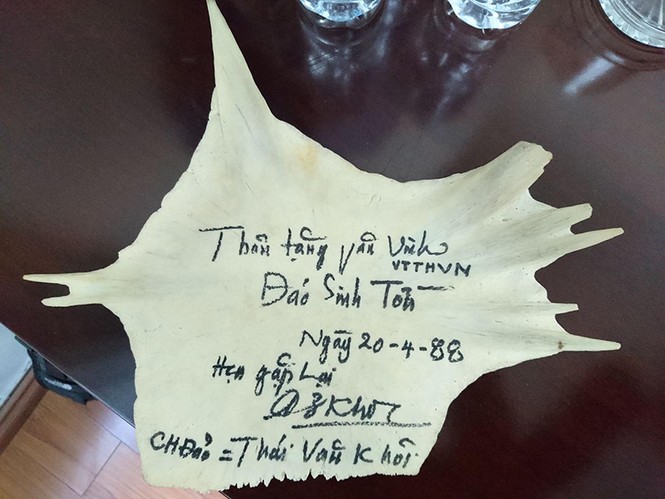 Thân tặng Văn Vinh
VTTHVN
Đảo Sinh Tồn
Ngày 20-4-88
Hẹn gặp Lại
Khôi
CHĐảo = Thái Văn Khôi